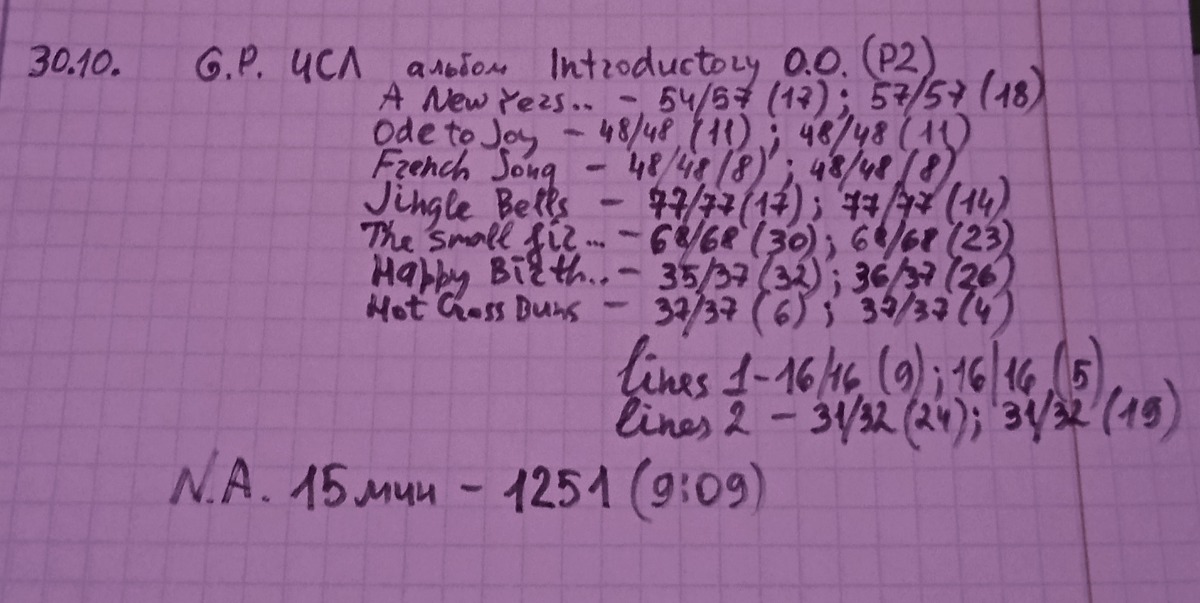 30.10. G.P. ЧСЛ альбом Introductory O.O. (P2)
A New Yers.. - 54/57 (17); 57/57 (18)
Ode to Joy - 48/48 (11); 48/48 (11)
French Song - 48/48 (8); 48/48 (8)
Jingle Bells - 77/77 (17); 77/77 (14)
The small fir... - 68/68 (30); 68/68 (23)
Happy Birth.. - 35/37 (32); 36/37 (26)
Hot Cross Buns - 37/37 (6); 37/37 (4)
lines 1 - 16/16 (9); 16/16 (5)
lines 2 - 31/32 (24); 31/32 (19)
N.A. 15 мин - 1251 (9:09)